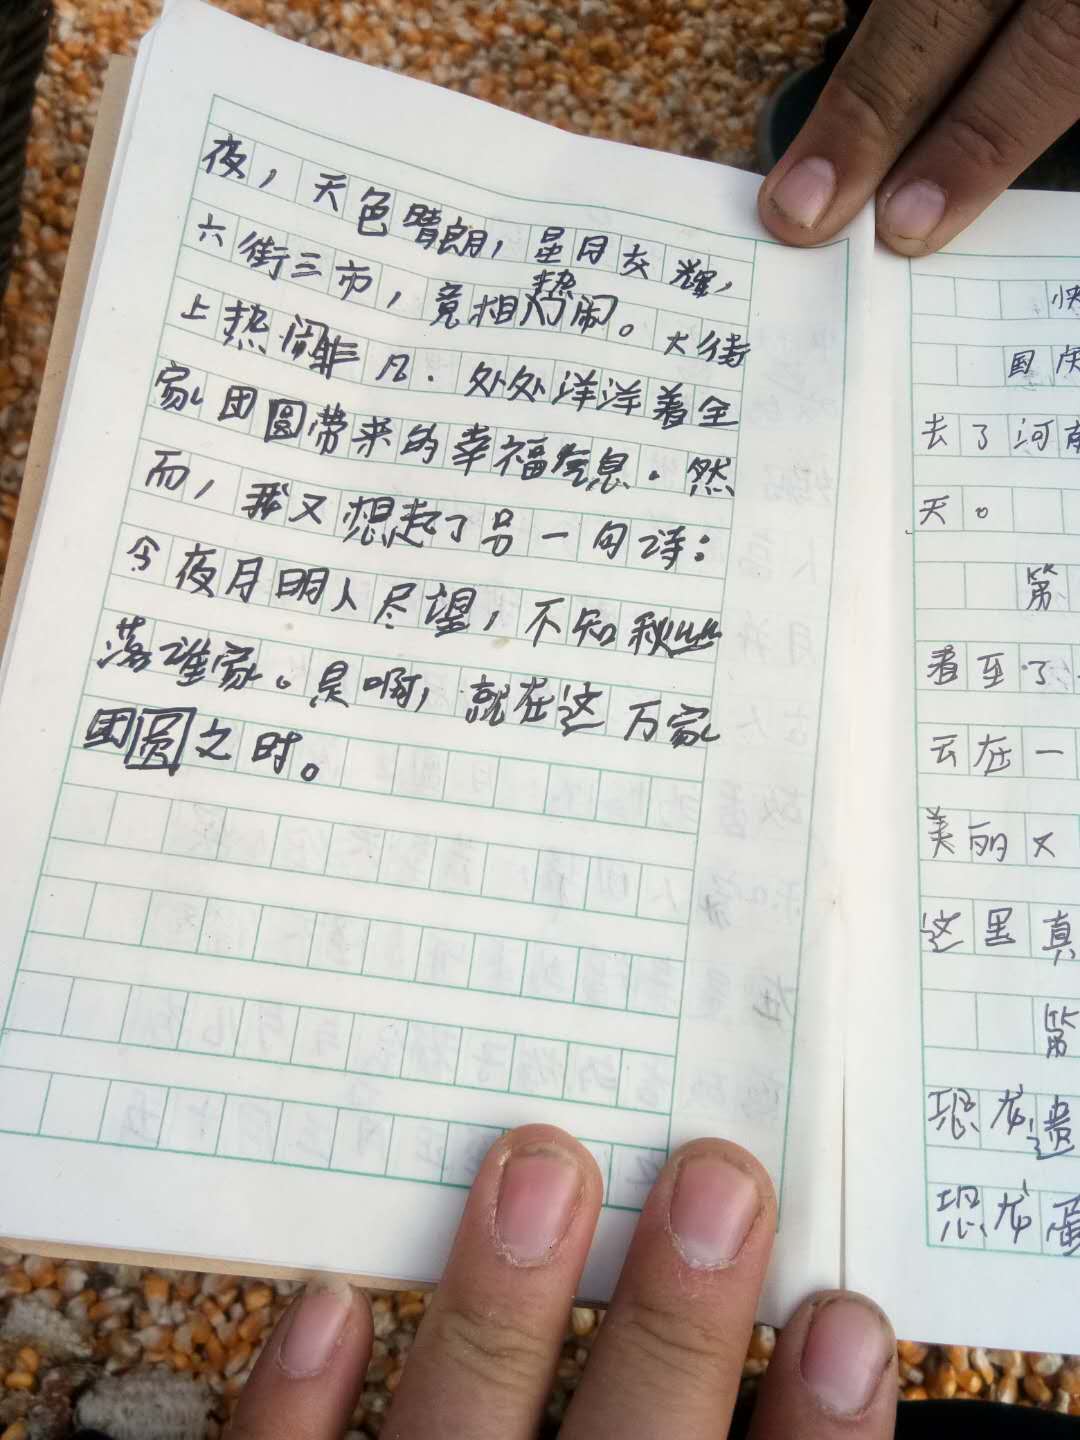 夜，天色晴朗，星月交辉，
六街三市，竟相热闹。大街
上热闹非凡．处处洋洋着全
家团圆带来的幸福信息．然
而，我又想起了另一句诗：
今夜月明人尽望，不知秋思
落谁家。是啊，就在这万家
团圆之时。
快
国庆
去了河南
天。
第
看至了
云在一
美丽又
这里真
第
恐龙遗
恐龙蛋